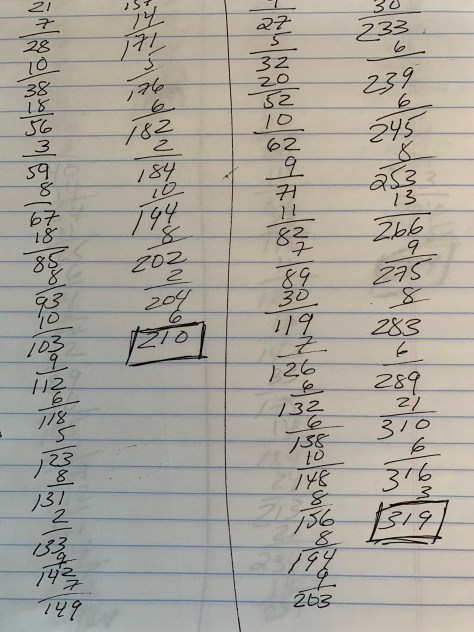 21
7
28
10
38
18
56
3
59
8
67
18
85
8
93
10
103
9
112
6
118
5
123
8
131
2
133
9
142
7
149
157
14
171
5
176
6
182
2
184
10
194
8
202
2
204
6
210
27
5
32
20
52
10
62
9
71
11
82
7
89
30
119
7
126
6
132
6
138
10
148
8
156
8
194
9
203
30
233
6
239
6
245
8
253
13
266
9
275
8
283
6
289
21
310
6
316
3
319